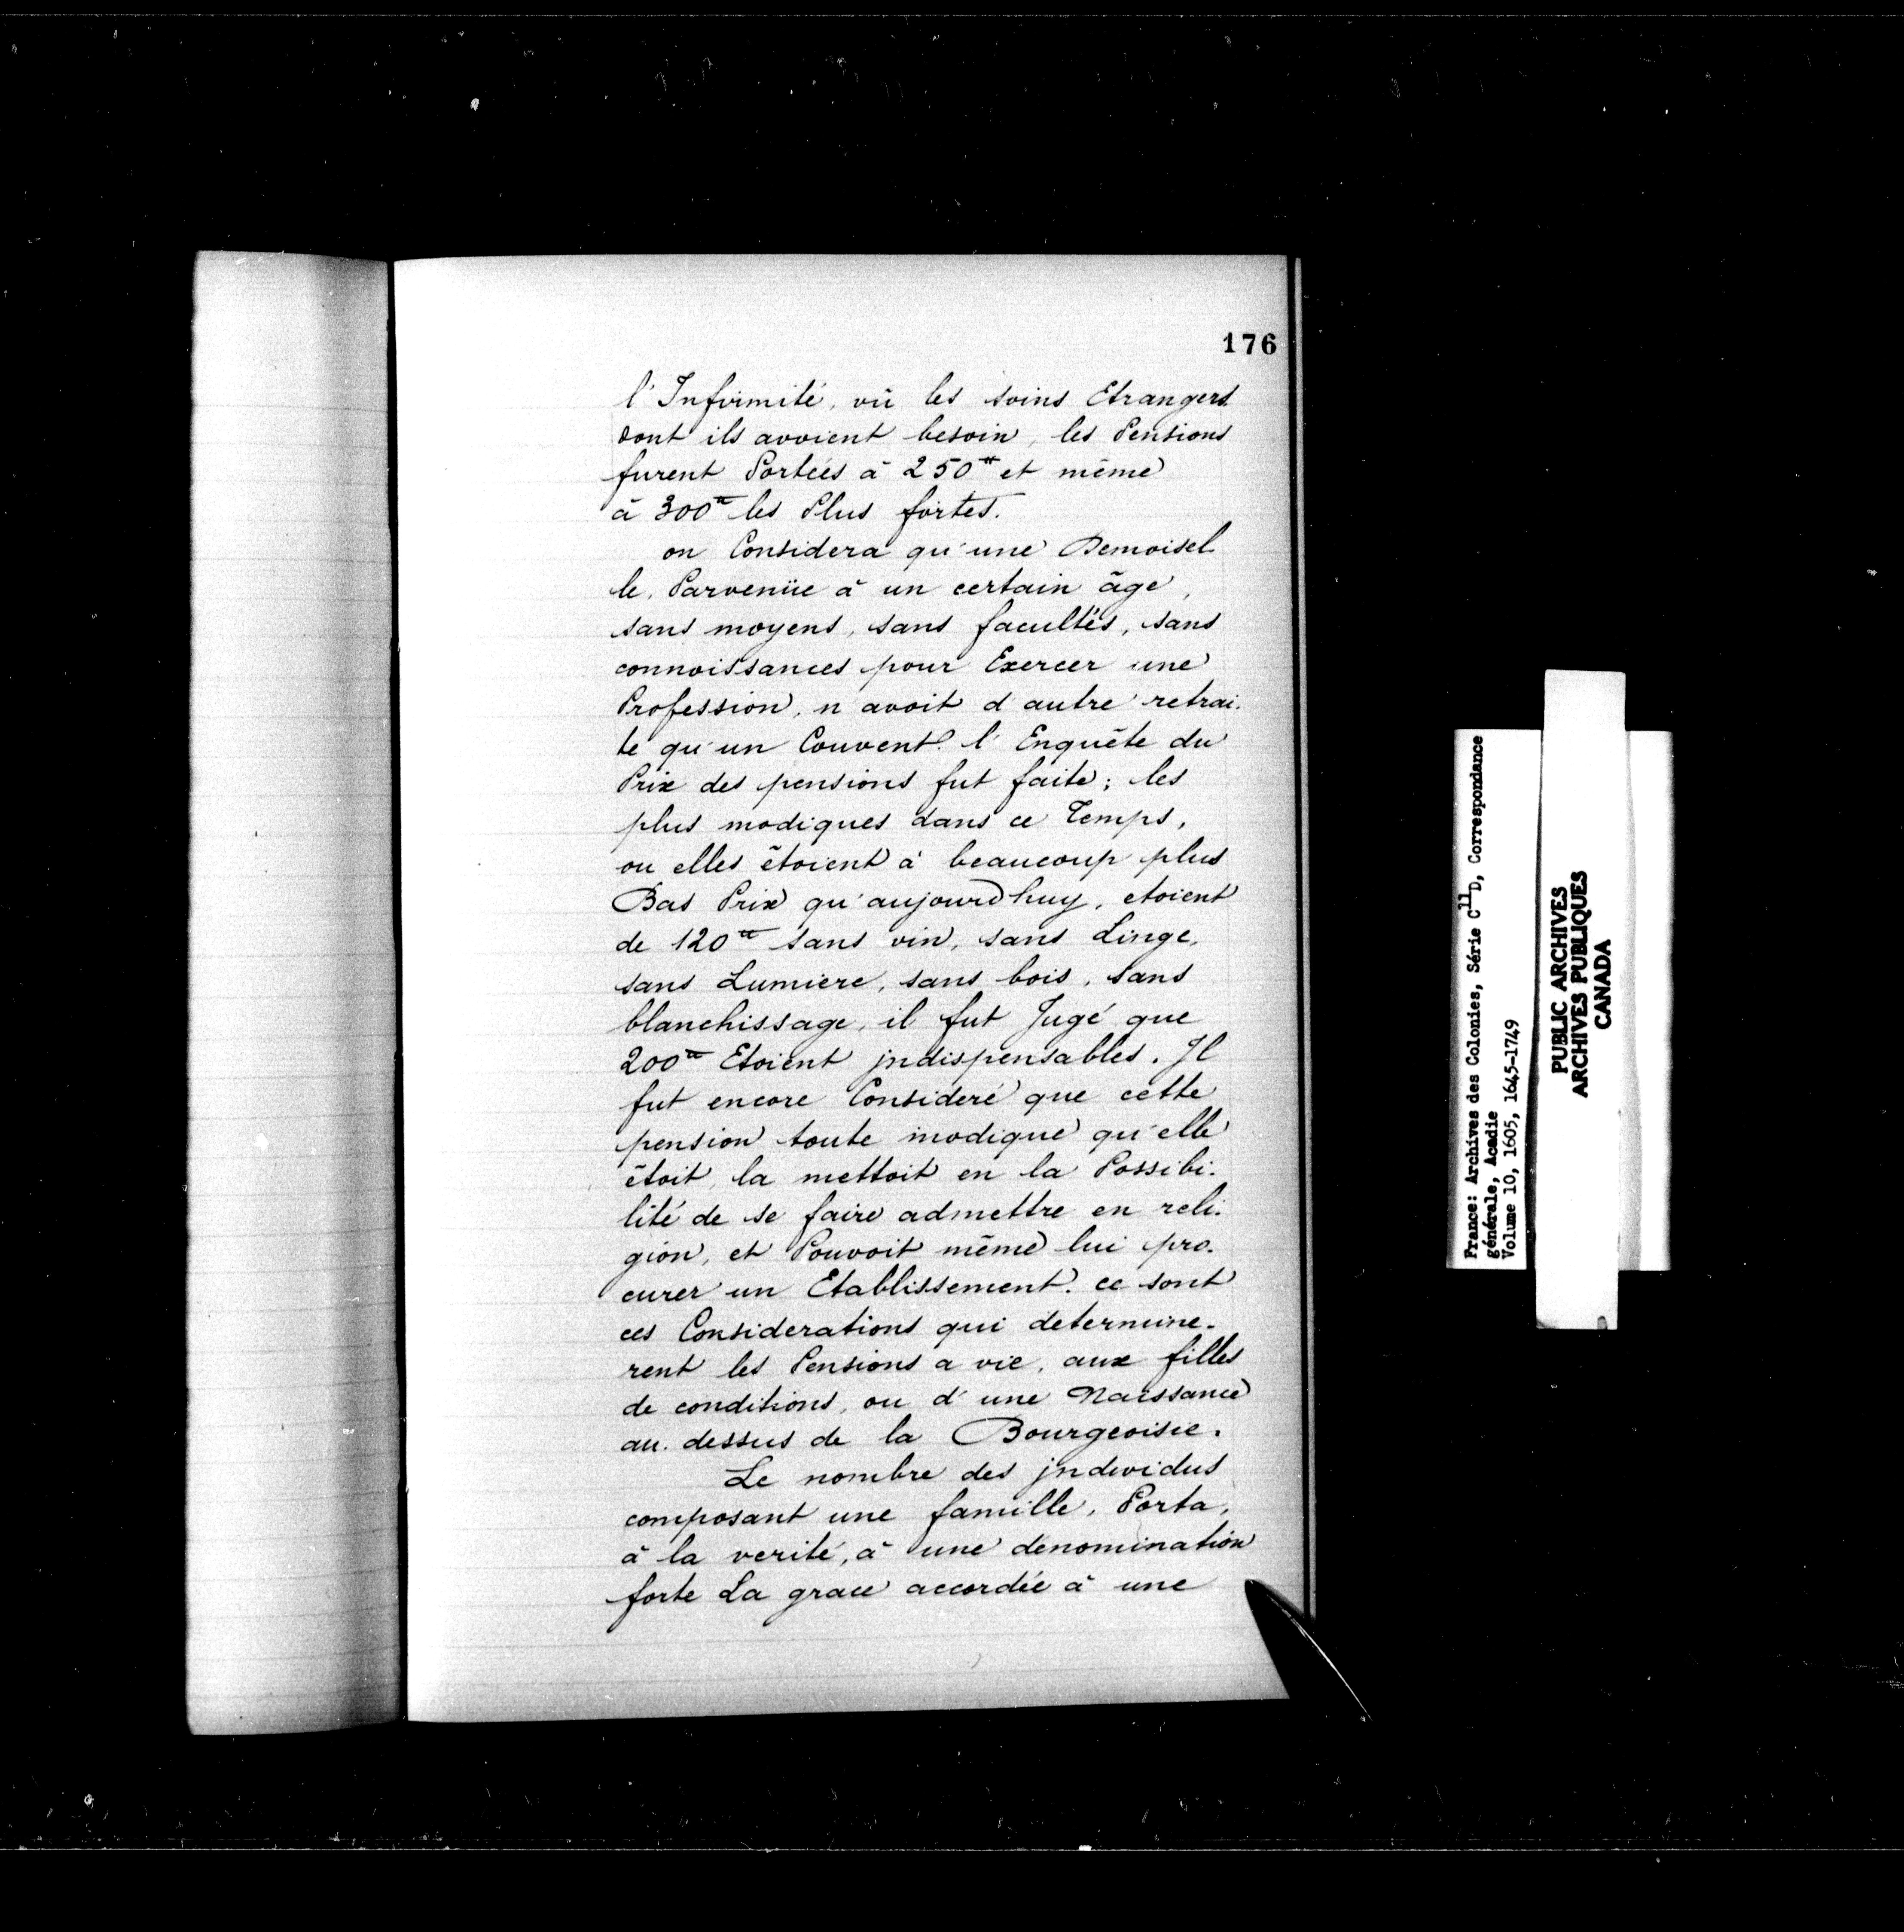 176
l'Infirmité, vû les soins Etrangers
dont ils avoient besoin, les Pensions
furent Portées à 250tt et même
à 300tt les Plus fortes.
on Considera qu'une Demoisel
le, Parvenüe à un certain âge,
sans moyens, sans facultés, sans
connoissances pour Exercer une
Profession, n'avoit d'autre retrai-
te qu'un Couvent. l'Enquête du
Prix des pensions fut faite; les
plus modiques dans ce Temps,
ou elles êtoient à beaucoup plus
Bas Prix qu'aujourdhuy, etoient
de 120tt sans vin, sans Linge,
sans Lumiere, sans bois, sans
blanchissage, il fut Jugé que
200tt Etoient jndispensables. Jl
fut encore Consideré que cette
pension toute modique qu'elle
êtoit, la mettoit en la Possibi-
lité de se faire admettre en reli-
gion, et Pouvoit même lui pro-
curer un Etablissement. ce sont
ces Considerations qui determine-
rent les Pensions a vie, aux filles
de conditions, ou d'une Naissance
au-dessus de la Bourgeoisie.
Le nombre des jndividus
composant une famille, Porta,
à la verité, à une denomination
forte La grace accordée à une
France: Archives des Colonies, Série C11D, Correspondance
générale, Acadie
Volume 10, 1605, 1645-1749
PUBLIC ARCHIVES
ARCHIVES PUBLIQUES
CANADA